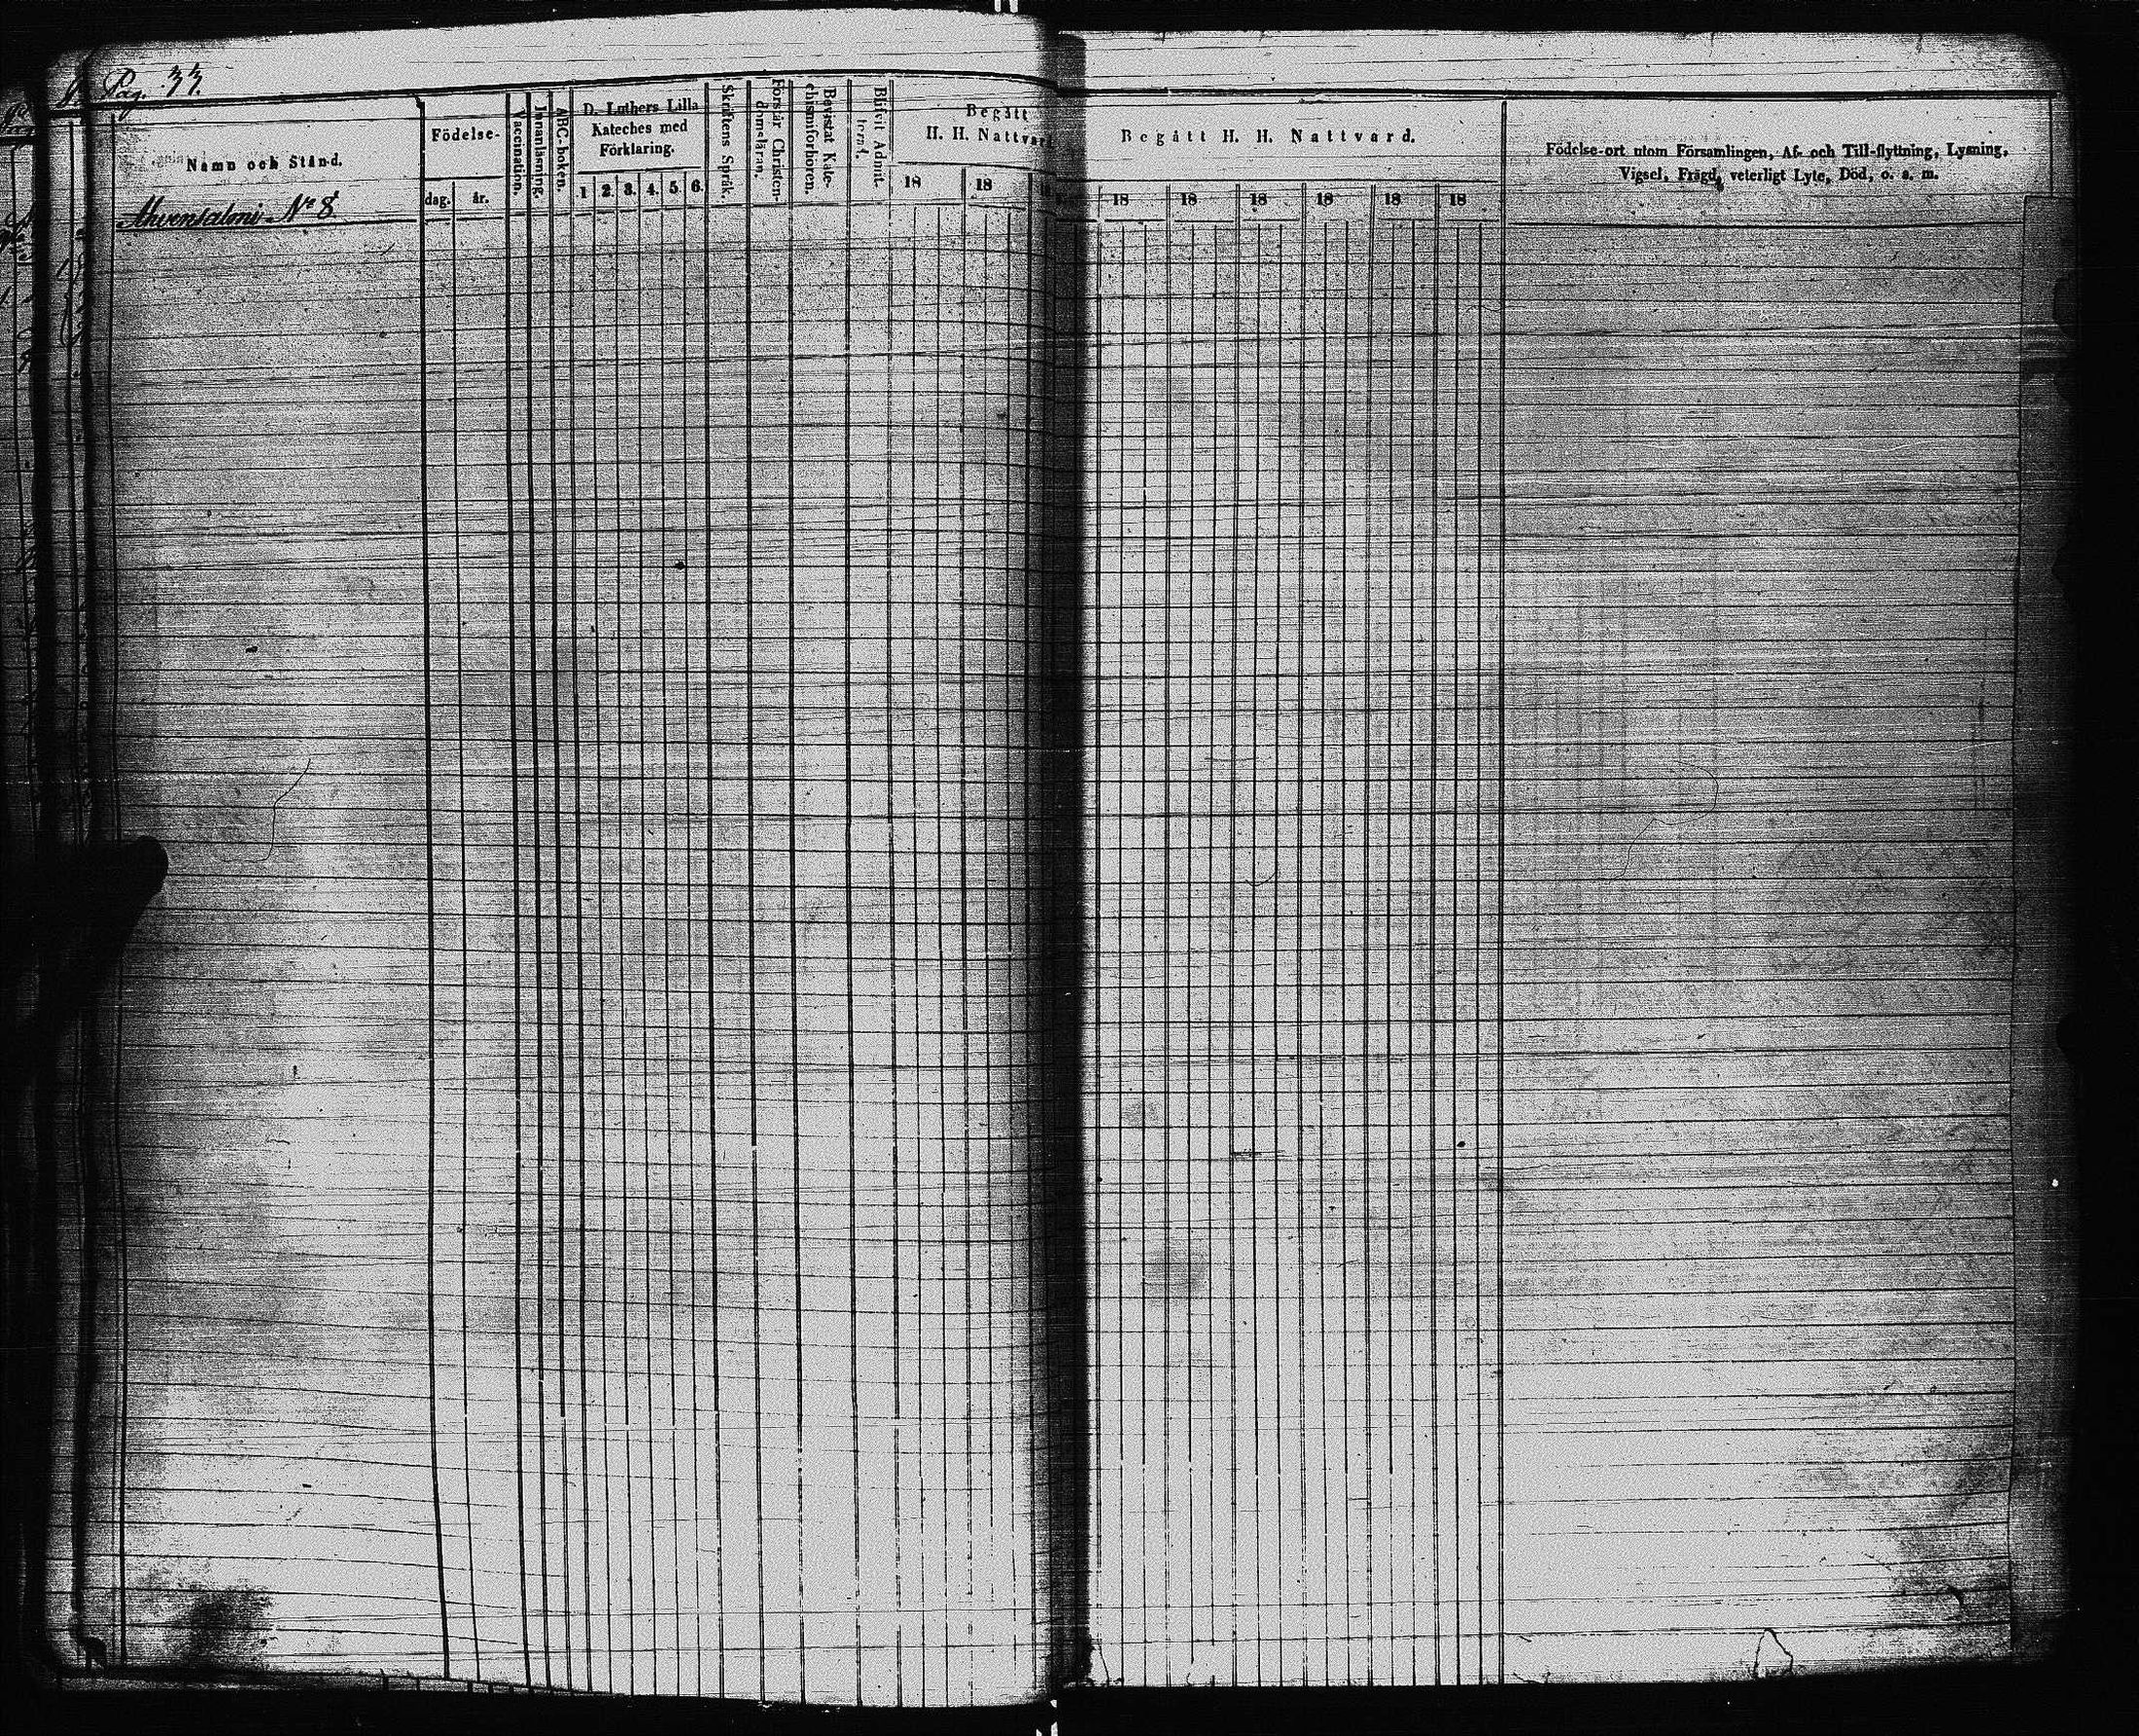 Pag. 33.
Namn och Stånd.
Födelse-
dag.
år.
Vaccination.
Innanläsning.
ABC-boken.
D. Luthers Lilla
Kateches med
Förklaring.
1 2. 3. 4. 5. 6.
Skriftens Språk.
Förstår Christen-
domsläran.
Bevistat Kate-
chismiförhören.
Blifvit Admit-
terad.
Begått
H. H. Nattvard
18 18
Begått H. H. Nattvard.
18 18 18 18 18 18
Födelse-ort utom Församlingen, Af- och Till-flyttning, Lysning,
Vigsel, Frägd, veterligt Lyte, Död, o. s. m.
Ahvensalmi No 8